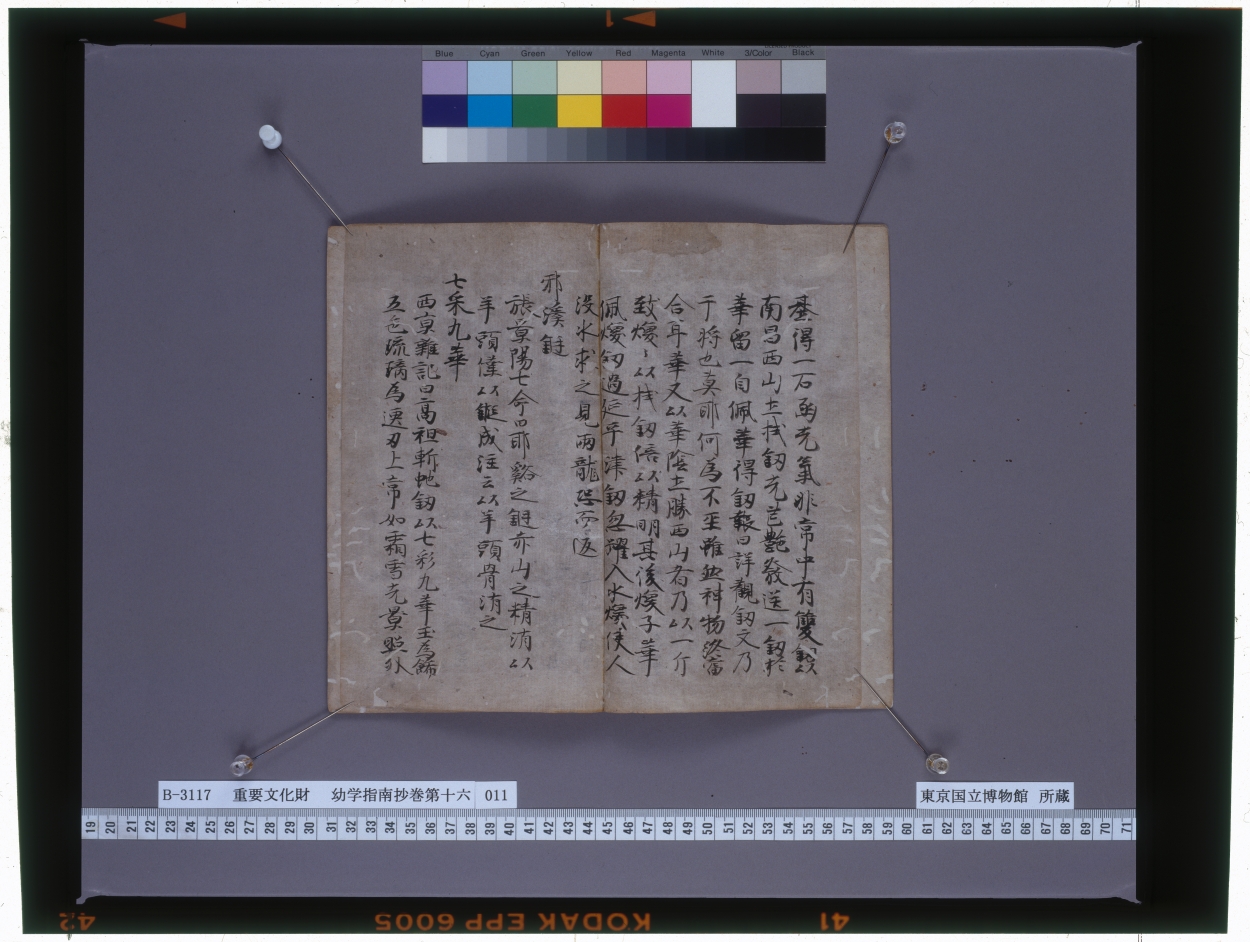 Blue Cyan Green Yellow Red Magenta White 3/Color Black
基得一石函光氣非常中有雙釼以
南昌西山土拭釼光芒艶發送一釼於
華留一自佩華得釼報曰詳觀釼文乃
干將也莫耶何為不至雖然神物終當
合耳華又以華陰土勝西山者乃以一斤
致煥〻以拭釼倍以精明其後煥子華
佩煥釼過延平津釼忽躍入水煥使人
没水求之見兩龍恐而返
邪溪鋌
張景陽七命曰耶谿之鋌赤山之精消以
羊頭鏷以鍛成注云以羊頭骨消之
七采九華
西京雜記曰高祖斬虵釼以七彩九華玉為餝
五色琉璃為匣刃上常如霜雪光景照外
B-3117 重要文化財 幼学指南抄巻第十六 011
東京国立博物館 所蔵
19 20 21 22 23 24 25 26 27 28 29 30 31 32 33 34 35 36 37 38 39 40 41 42 43 44 45 46 47 48 49 50 51 52 53 54 55 56 57 58 59 60 61 62 63 64 65 66 67 68 69 70 71
41 KODAK EPP 6005 42